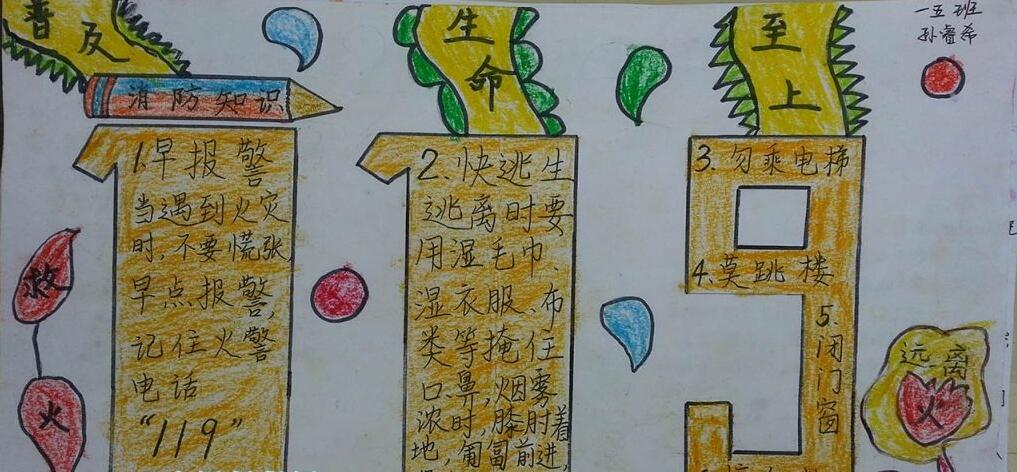 普及
消防知识
生命
至上
一五班
孙睿希
1.早报警
当遇到火灾
时,不要慌张
早点报警,
记住火警
电话
"119"
2.快逃生
逃离时要
用湿毛巾、
湿衣服、布
类等掩住
口鼻,烟雾
浓时,膝肘着
地,匍匐前进,
3.勿乘电梯
4.莫跳楼
5.
闭
门
窗
救
火
远离
火